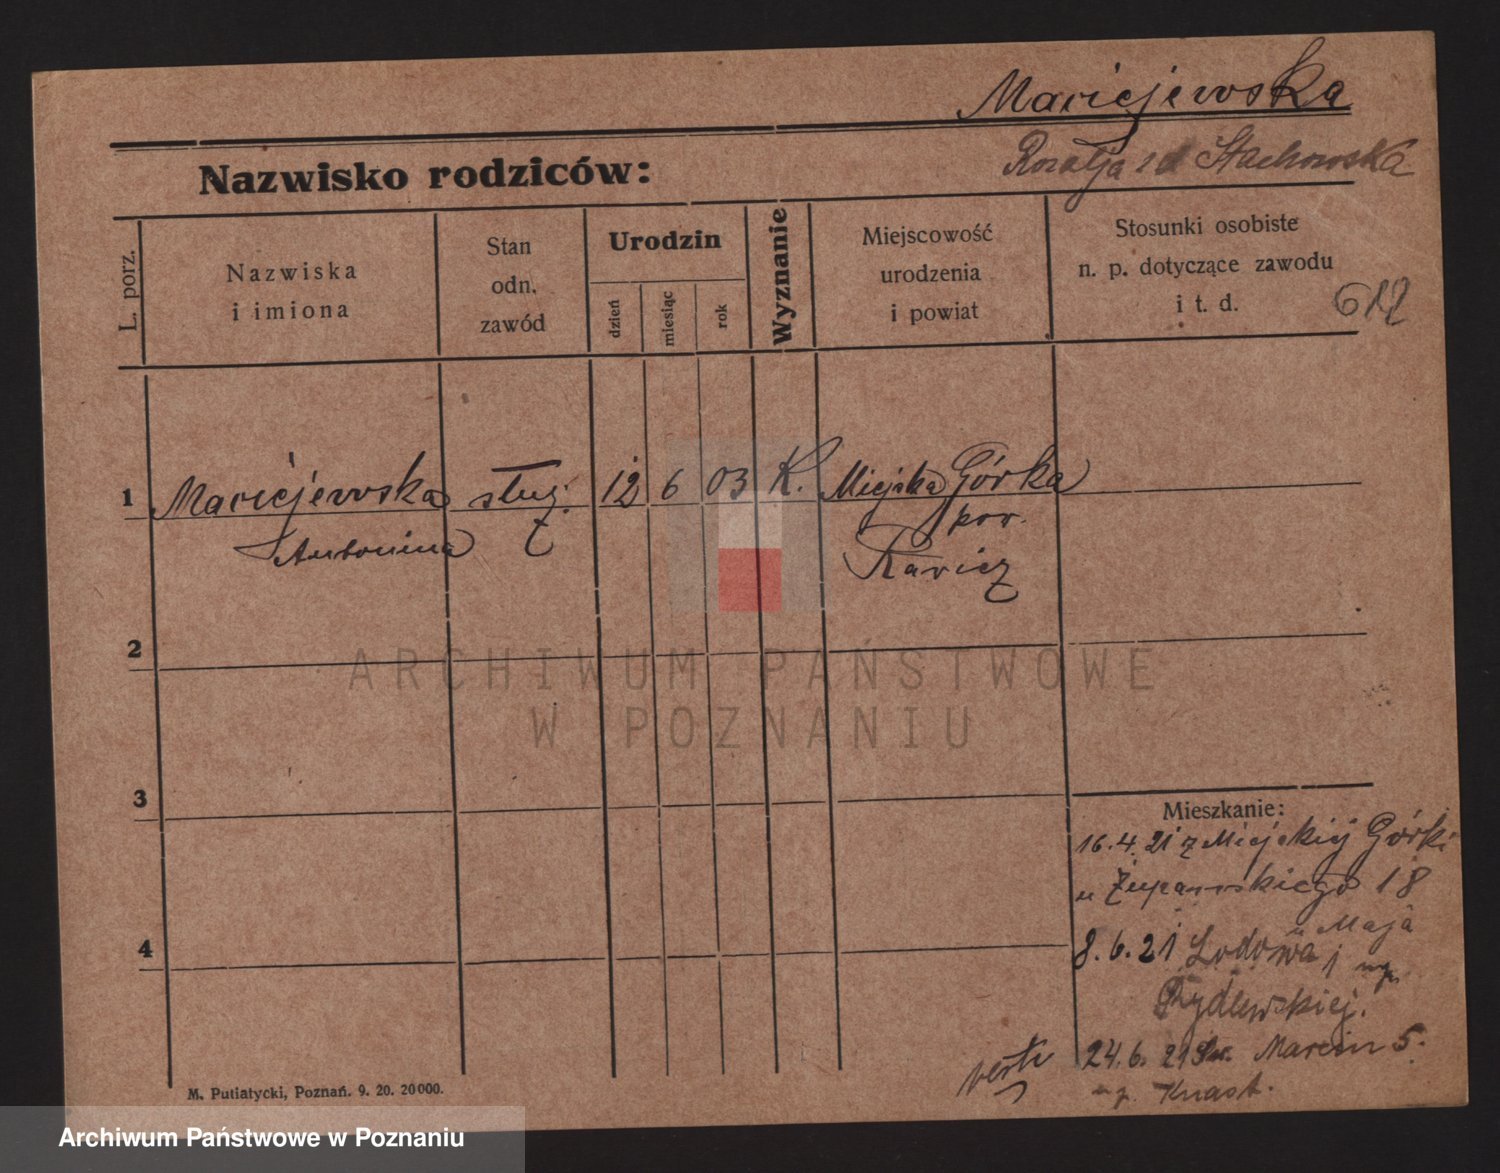 Maciejewska
Rozalja z d Stachowska
Nazwisko rodziców:
L. porz.
Nazwiska
i imiona
Stan
odn.
zawód
Urodzin
dzień
miesiąc
rok
Wyznanie
Miejscowość
urodzenia
i powiat
Stosunki osobiste
n. p. dotyczące zawodu
i t. d.
612
1 Maciejewska służ. 12 6 03 K. Miejska Górka
Antonina
pow.
Rawicz
2
ARCHIWUM PAŃSTWOWE
W POZNANIU
3
Mieszkanie:
16.4.21 z Miejskiej Górki
u Żupańskiego 18
Maja
4
8.6.21 Lodowa
Rydlewskiej.
24.6.21 Św. Marcin 5.
Knast.
verte
M. Putiatycki, Poznań. 9. 20. 20000.
Archiwum Państwowe w Poznaniu